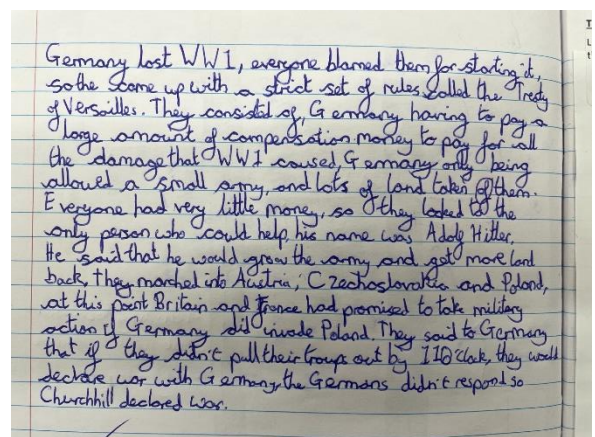 Germany lost WW1, everyone blamed them for starting it,
so the came up with a strict set of rules called the Treaty
of Versailles. They consisted of, Germany having to pay a
large amount of compensation money to pay for all
the damage that WW1 caused, Germany only being
allowed a small army, and lots of land taken off them.
Everyone had very little money, so they looked to the
only person who could help, his name was Adolf Hitler.
He said that he would grow the army and get more land
back, they marched into Austria, Czechoslovakia and Poland,
at this point Britain and France had promised to take military
action if Germany did invade Poland. They said to Germany
that if they didn't pull their troups out by 11O'clock, they would
declare war with Germany, the Germans didn't respond so
Churchhill declared war.